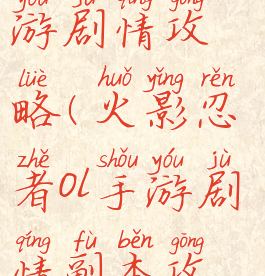 yóu jù qíng gōng
游剧情攻
lüè huǒ yǐng rěn
略(火影忍
zhě shǒu yóu jù
者ol手游剧
qíng fù běn gōng
情副本攻